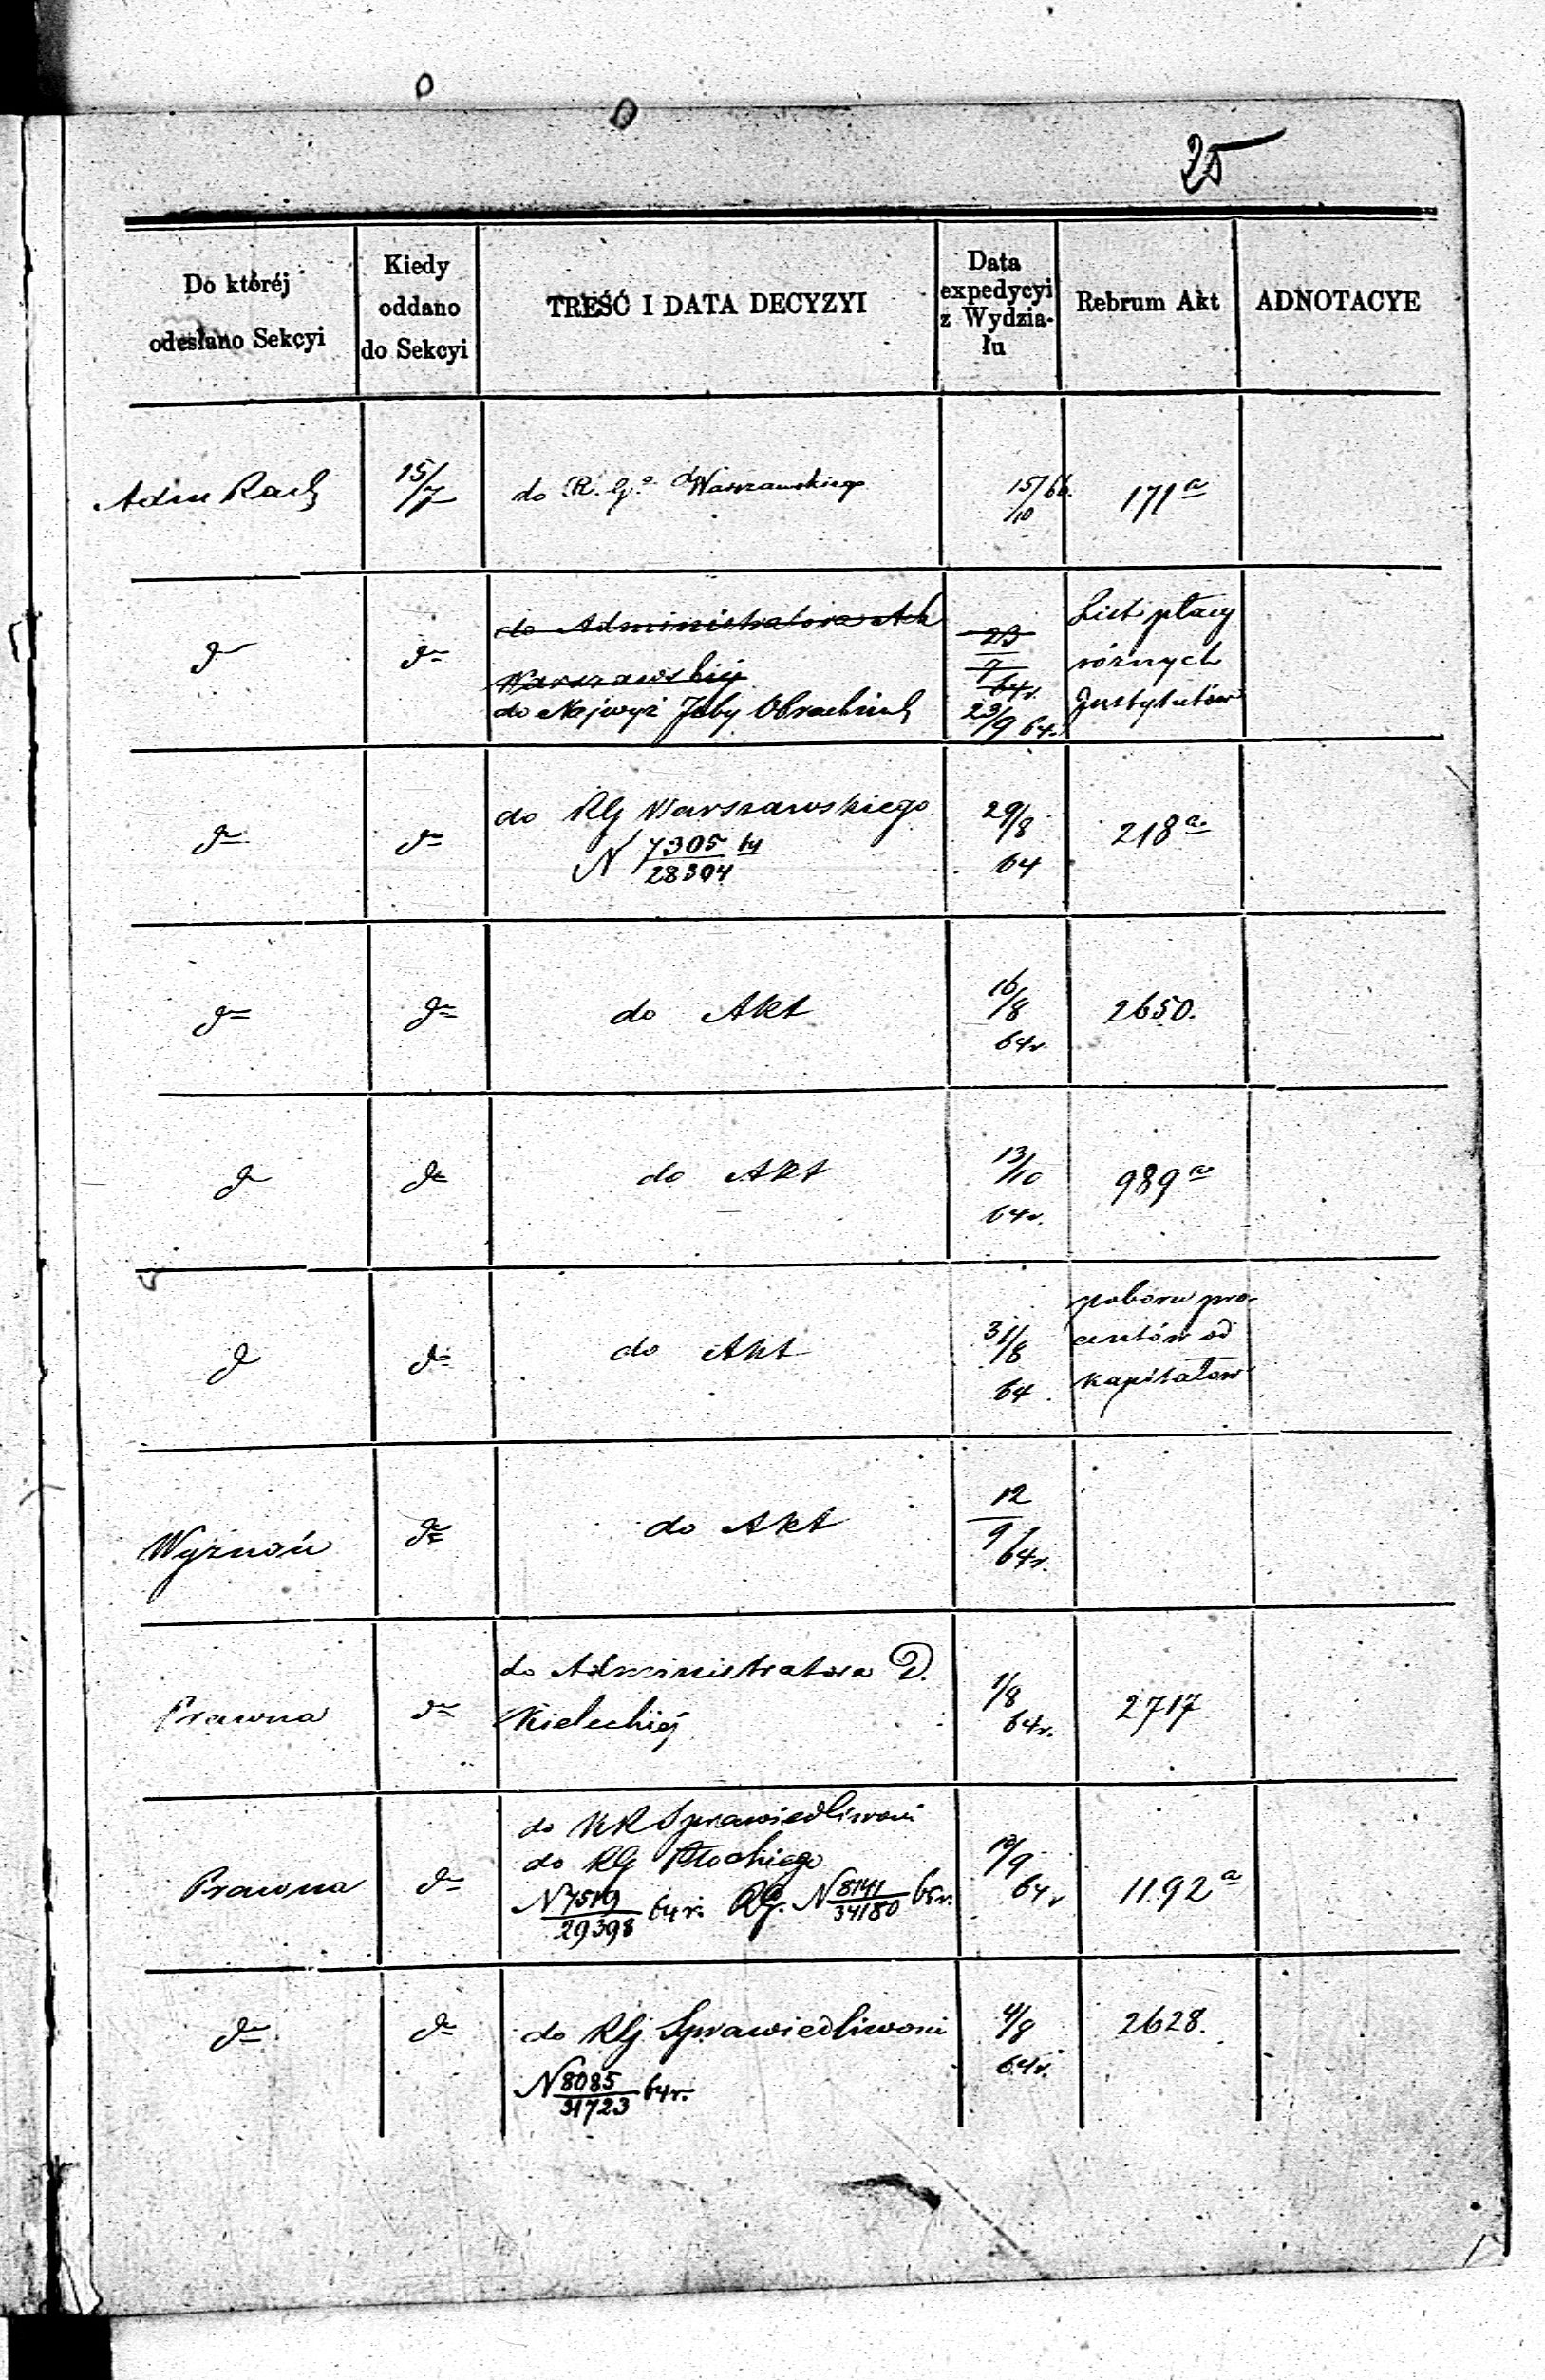 25
Do któréj
odesłano Sekcyi
Kiedy
oddano
do Sekcyi
TREŚĆ I DATA DECYZYI
Data
expedycyi
z Wydzia-
łu
Rebrum Akt
ADNOTACYE
Adm Rach
15/7
do R. Go Warszawskiego
15/10 66.
171 a
do
do
do Administratora Arch
Warszawskiej
do Najwyż Izby Obrachunk
23/9 64r.
23/9 64r.
List płacy
różnych
Instytutów
do
do
do RG Warszawskiego
N 7305/28304 64
29/8
64
218 a
do
do
do Akt
16/8
64r.
2650.
do
do
do Akt
13/10
64r.
989 a
do
do
do Akt
31/8
64
poboru pro-
centów od
kapitałow
Wyznań
do
do Akt
12/9 64r.
Prawna
do
do Administratora D.
Kieleckiej
1/8
64r.
2717
Prawna
do
do KR Sprawiedliwości
do RG Płockiego
N 7519/29398 64 r. RG. N 8141/34180 65r.
12/9
64 r
1192 a
do
do
do RG Sprawiedliwosci
N 8085/31723 64r.
4/8
64r.
2628.